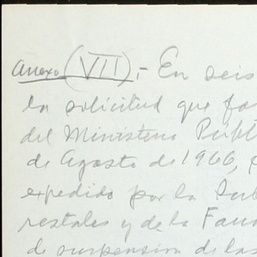 Anexo (VII).- En seis
la solicitud que fo
del Ministerio Públ
de Agosto de 1966, e
expedido por la Sub
restales y de la Faun
de suspension de las